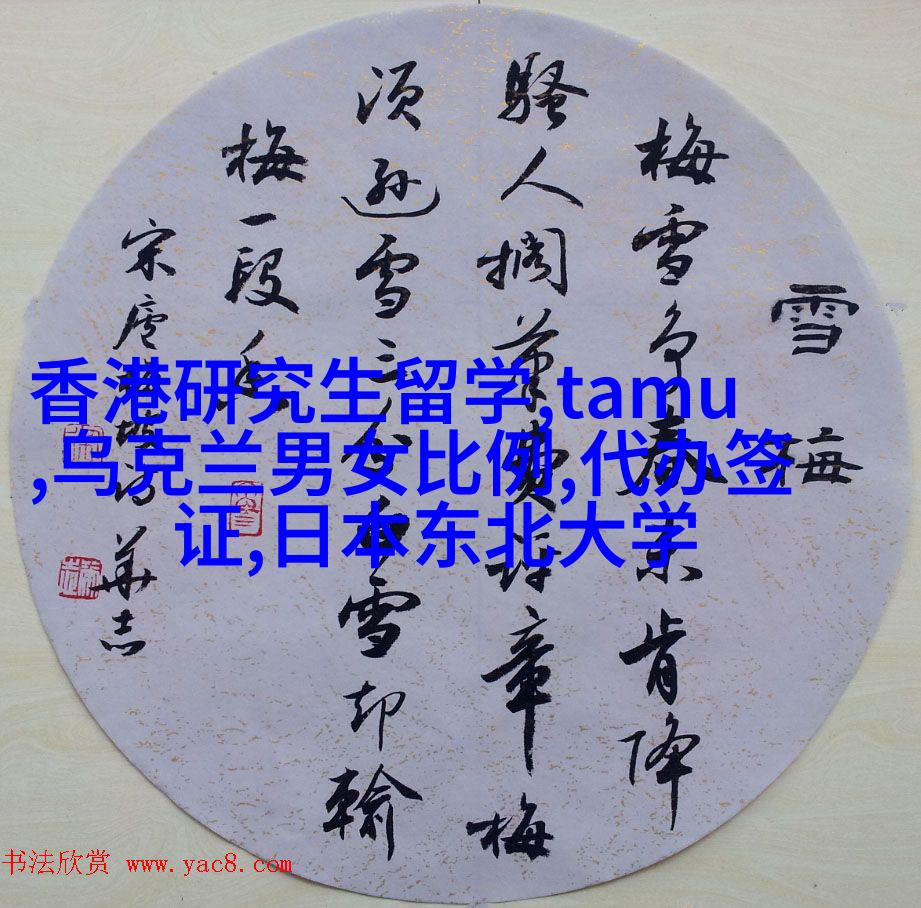 雪梅
梅雪争春未肯降
騷人搁筆費評章梅
须遜雪三分白雪却輸
梅一段香
宋 梅坡诗 華志
香港研究生留学,tamu
,乌克兰男女比例,代办签
证,日本东北大学
书法欣赏 www.yac8.com